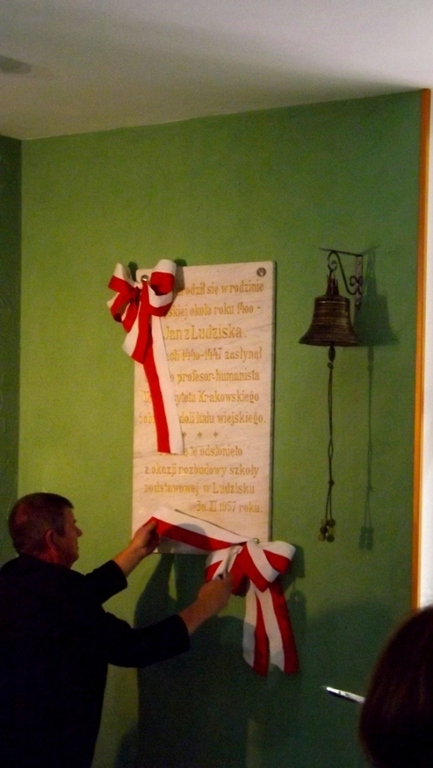 się w rodzinie
około roku 1400 -
Jan z Ludziska.
1440-1447 zasłynął
profesor-humanista
Krakowskiego
ludu wiejskiego.
* * *
odsłonięto
z okazji rozbudowy szkoły
podstawowej w Ludzisku
XI 1957 roku.